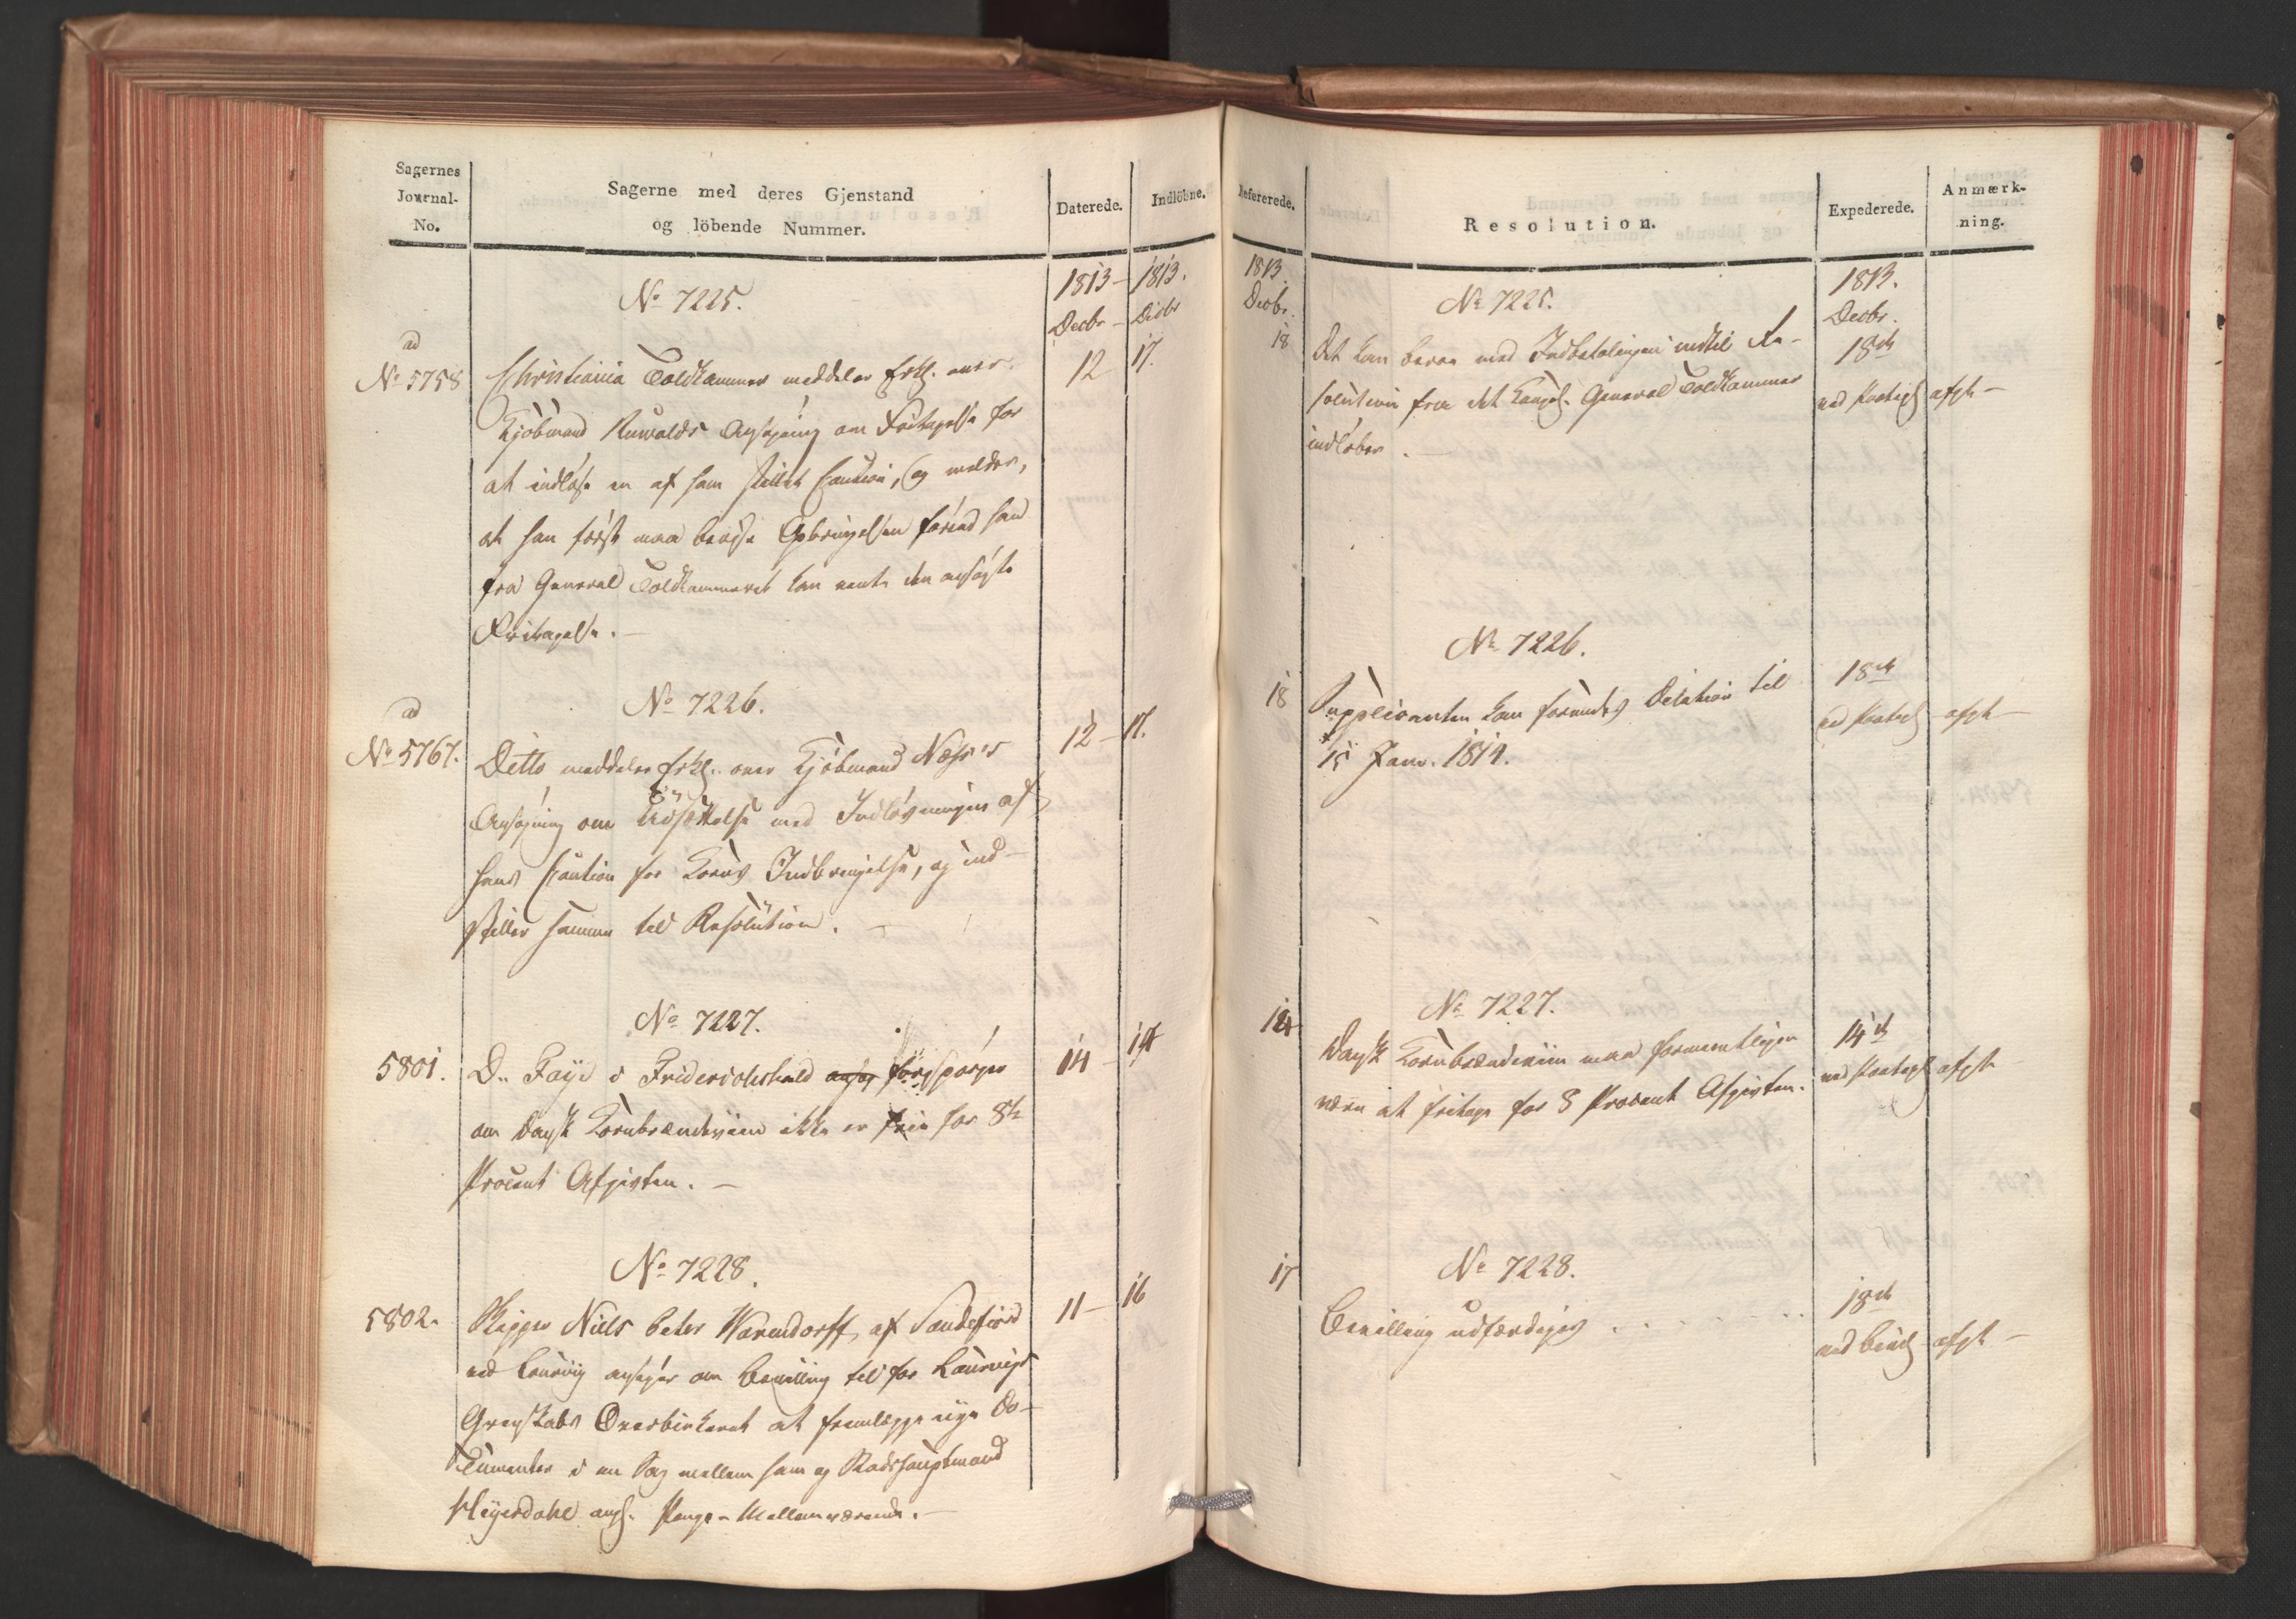 Sagernes
Journal-
No.
Sagerne med deres Gjenstand
og löbende Nummer.
Daterede.
Indlöbne.
1813 - 1813.
Decbr - Decbr
No 7225.
ad
No 5758
12
17.
Christiania Toldkammer meddeler Erkl. over
Kjöbmand Ruwalds Ansøgning om Fritagelse for
at indløse en af ham stillet Caution, og melder,
at han først maa bevise Opbringelsen førend han
fra General Toldkammeret kan vente den ansøgte
Fritagelse. —
No 7226.
ad
No 5767.
12 - 17.
Ditto meddeler Erkl. over Kjöbmand Næss's
Ansøgning om Udsættelse med Indløsningen af
hans Caution for Korns Indbringelse, og ind-
stiller samme til Resolution. —
No 7227.
5801.
14 - 14
D.. Faye i Friderichshald ansøg forespørger
om dansk Kornbrændeviin ikke er frie for 8te
Procent Afgiften. —
No 7228.
5802.
11 - 16
Skipper Niels Peter Warendorff af Sandefiord
ved Laurvig ansøger om Bevilling til for Laurvigs
Grevskabs Overbirkeret at fremlægge nye Do-
cumenter i en Sag mellem ham og Stadshauptmand
Heyerdahl angl. Penge-Mellemværende. —
Refererede.
Resolution.
Expederede.
Anmærk-
ning.
1813.
Decbr.
1813.
Decbr.
No 7225.
18
Det kan beroe med Indbetalingen indtil Re-
solution fra det Kongel. General Toldkammer
indløber.
18de
ved Paategn
afgk —
No 7226.
18
Supplicanten kan forundes Dilation til
15 Janv. 1814.
18de
ved Paategn
afgk —
No 7227.
14
Dansk Kornbrændeviin maa formeentligen
være at fritage for 8 Procent Afgiften.
14de
ved Paategn
afgk
No 7228.
17
Bevilling udfærdiges . . . . . . .
18de
afgk —